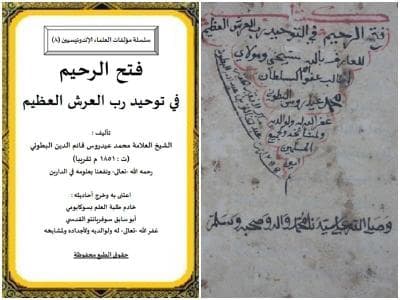 سلسلة مؤلفات العلماء الإندونيسيين (٨)
فتح الرحيم
في توحيد رب العرش العظيم
تأليف :
الشيخ العلامة محمد عيدروس قائم الدين البطوني
(ت : ١٨٥١ م تقريبا)
رحمه الله -تعالى- ونفعنا بعلومه في الدارين
اعتنى به وخرج أحاديثه :
خادم طلبة العلم بسوكابومي
أبو سابق سوفريانتو القدسي
غفر الله -تعالى- له ولوالديه ولأجداده ومشايخه
حقوق الطبع محفوظة
فتح الرحيم في التوحيد رب العرش العظيم
للعارف بالله شيخي ومولاي
السلطان
محمد عيدروس البطوني
غفر الله له ولوالديه
ولمشايخه ولجميع
المسلمين
امين
وصلى الله على سيدنا محمد واله وصحبه وسلم